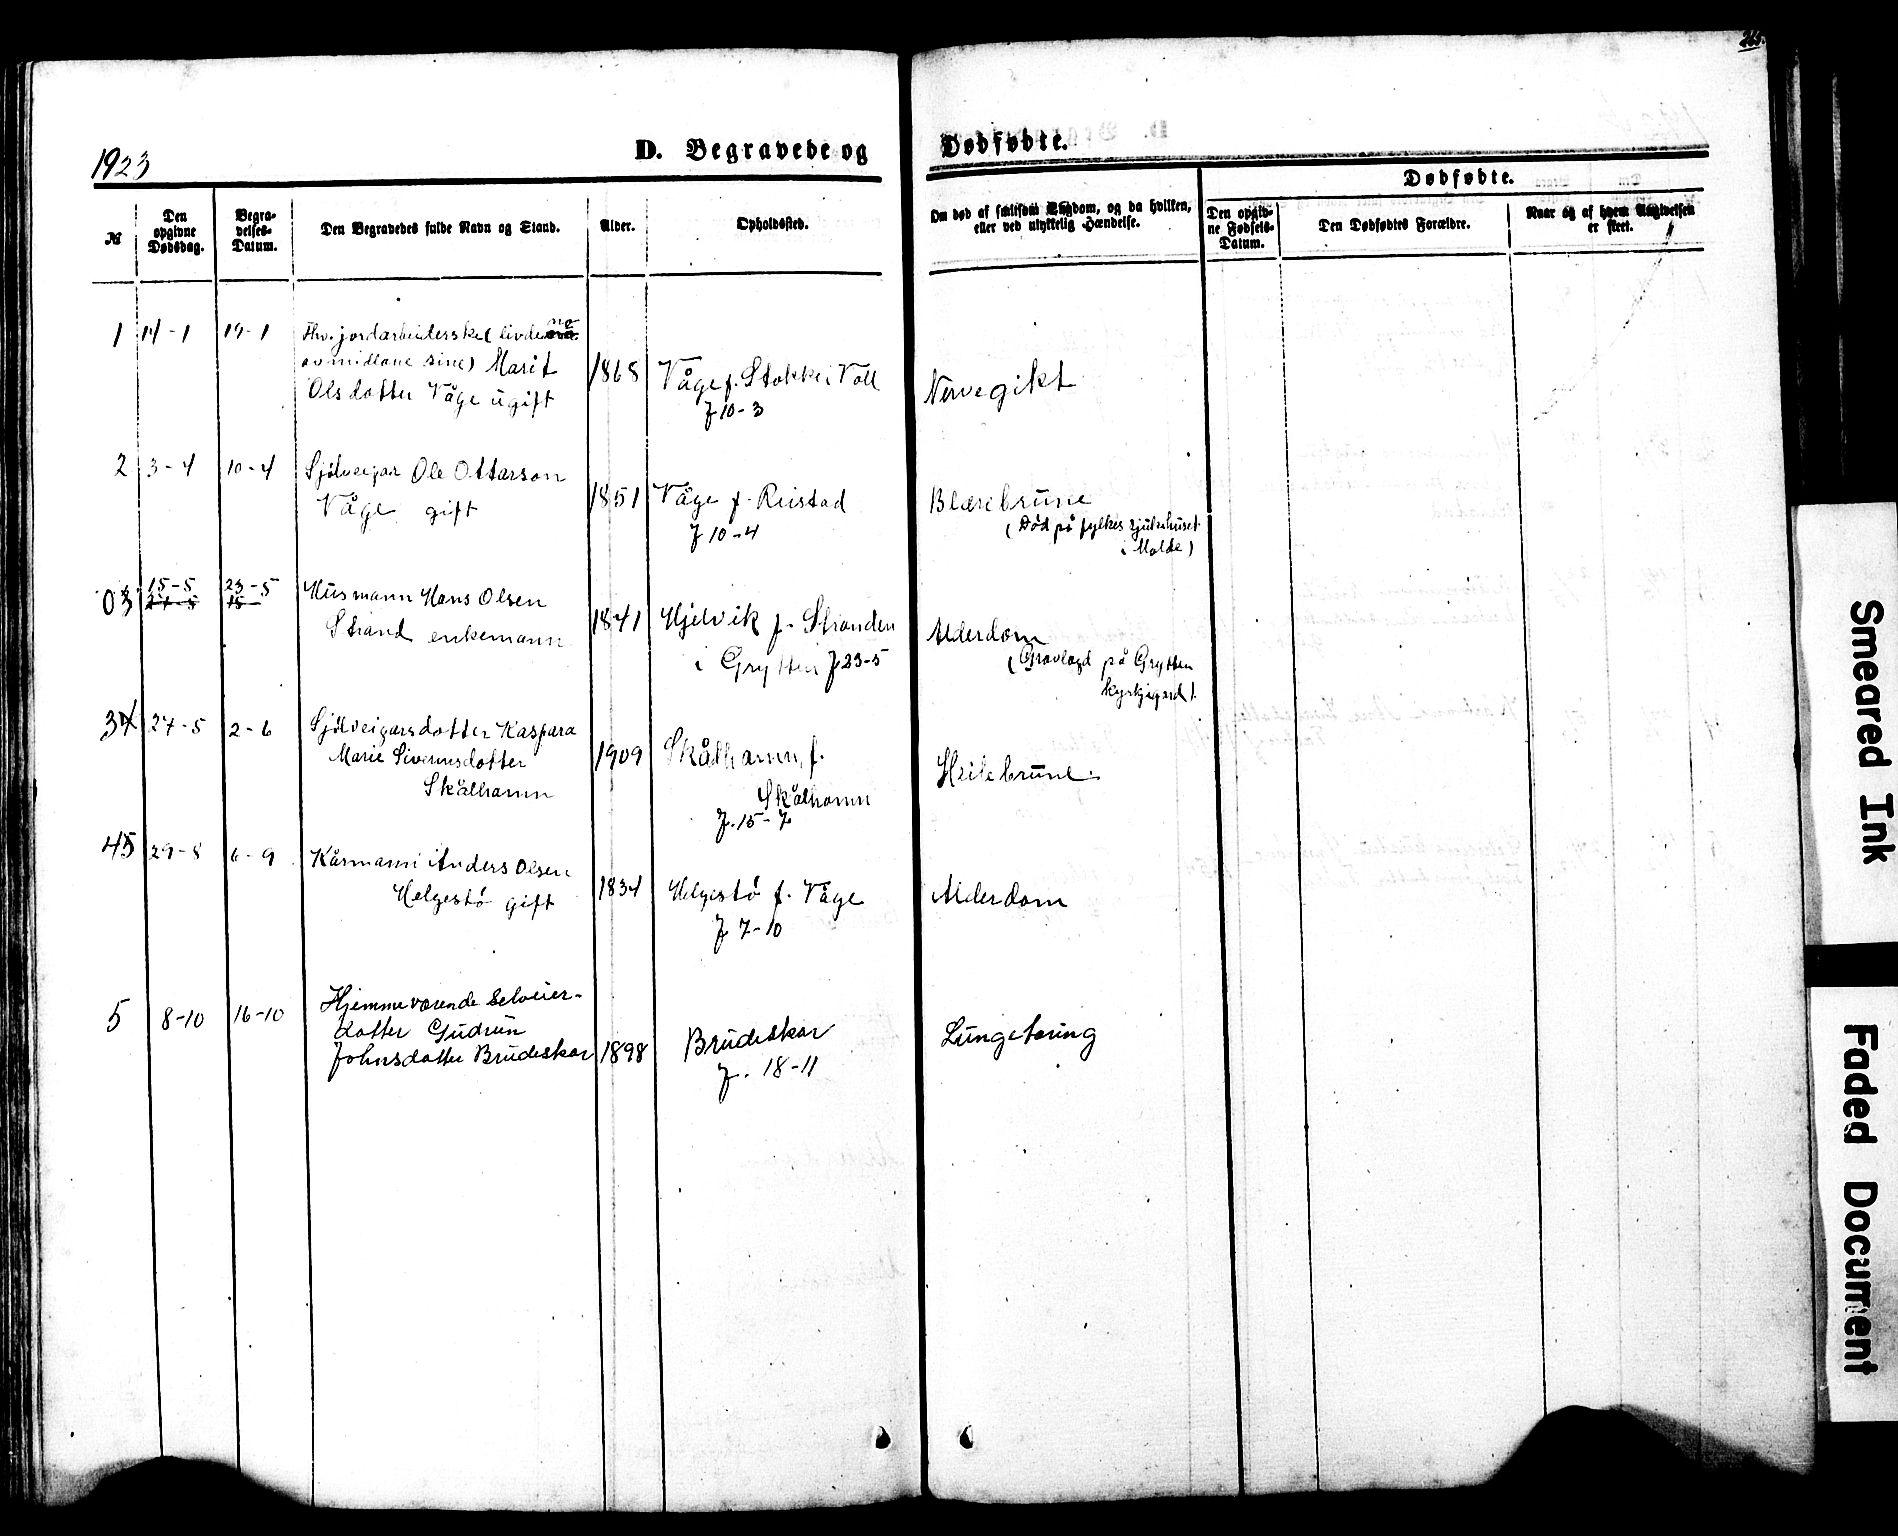 1923
D. Begravede og Dødfødte.
Dødfødte.
№
Den opgivne Dødsdag.
Begravelses-Datum.
Den Begravedes fulde Navn og Stand.
Alder.
Opholdssted.
Om død af smitsom Sygdom, og da hvilken,
eller ved ulykkelig Hændelse.
Den opgivne Fødsels-Datum.
Den Dødfødtes Forældre.
Naar og af hvem Angivelsen
er skeet.
1 14-1 19-1
Fhv. jordarbeiderske (livde no
av midlane sine) Marit
Olsdotter Våge ugift
1868
Våge f. Stokke i Voll
J 10-3
Nervegikt
2 3-4 10-4
Sjølveigar Ole Ottarson
Våge gift
1851
Våge f. Reistad
J 10-4
Blærebrune
(Død på fylkessjukehuset
i Molde)
03 15-5 23-5
27-5 15
Husmann Hans Olsen
Strand enkemann
1841
Hjelvik f. Stranden
i Grytten J 23-5
Alderdom
(Gravlagd på Grytten
kyrkjegard)
34 27-5 2-6
Sjølveigarsdotter Kaspara
Marie Sivertsdotter
Skålhamn
1909
Skålhamn, f.
Skålhamn
J. 15-7
Heilebrune
45 29-8 6-9
Kårmann Anders Olsen
Helgestø gift
1834
Helgestø f. Våge
J 7-10
Alderdom
5 8-10 16-10
Hjemmeværende selveier-
dotter Gudrun
Johnsdotter Brudeskar
1898
Brudeskar
J. 18-11
Lungetæring
Smeared Ink
Faded Document